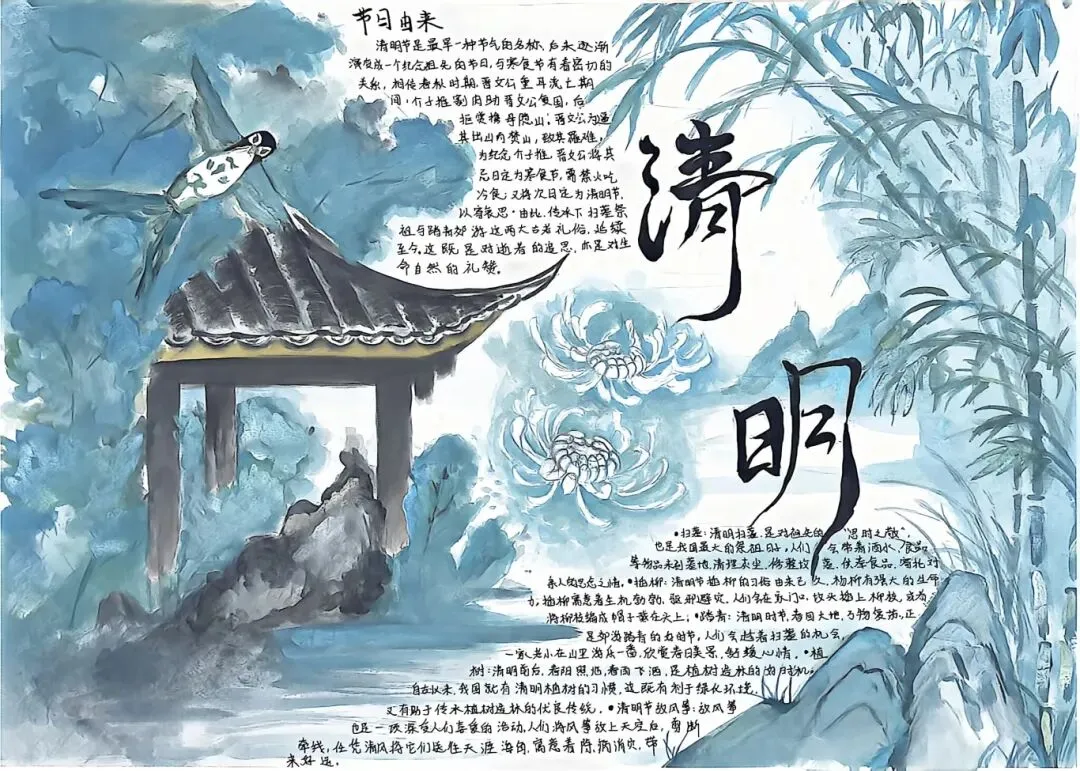 节日由来
清明节是最早一种节气的名称,后来逐渐
演变成一个纪念祖先的节日,与寒食节有着密切的
关系,相传春秋时期,晋文公重耳流亡期
间,介子推割肉助晋文公复国,后
拒赏携母隐山;晋文公为逼
其出山而焚山,致其罹难,
为纪念介子推,晋文公将其
忌日定为寒食节,需禁火吃
冷食,又将次日定为清明节,
以寄哀思。由此,传承下扫墓祭
祖与踏青郊游这两大古老礼俗,延续
至今。这既是对逝者的追思,亦是对生
命自然的礼赞。
清
明
•扫墓:清明扫墓,是对祖先的"思时之敬",
也是我国最大的祭祖日子,人们会带着酒水、食品
等物品来到墓地,清理灰尘,修整坟墓,供奉食品,寄托对
亲人的思念之情。•插柳:清明节插柳的习俗由来已久,杨柳有强大的生命
力,插柳寓意着生机勃勃、驱邪避灾,人们会在家门口、坟头插上柳枝,或者
将柳枝编成帽子戴在头上;•踏青:清明时节,春回大地,万物复苏,正
是郊游踏青的好时节,人们会趁着扫墓的机会,
一家老小在山里游乐一番,欣赏春日美景,舒缓心情。•植
树:清明前后,春阳照临,春雨飞洒,是植树造林的好时机。
自古以来,我国就有清明植树的习惯,这既有利于绿化环境,
又有助于传承植树造林的优良传统。•清明节放风筝:放风筝
也是一项深受人们喜爱的活动,人们将风筝放上天空后,剪断
牵线,任凭清风将它们送往天涯海角,寓意着除病消灾,带
来好运。